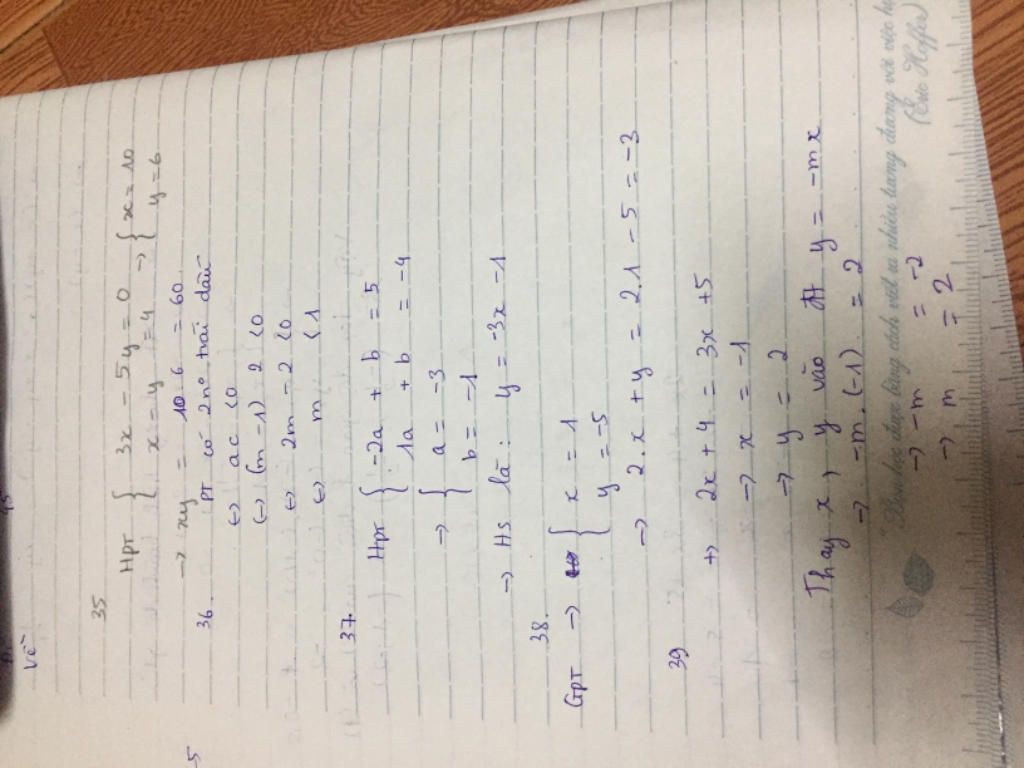 Về
35
Hpt { 3x - 5y = 0
x - y = 4 → { x = 10
y = 6
→ xy = 10.6 = 60
36. PT có 2 n⁰ trái dấu
↔ ac < 0
↔ (m-1) 2 < 0
↔ 2m - 2 < 0
↔ m < 1
37.
Hpt { -2a + b = 5
1a + b = -4
→ { a = -3
b = -1
→ Hs là: y = -3x - 1
38.
Gpt → { x = 1
y = -5
→ 2.x + y = 2.1 - 5 = -3
39
+> 2x + 4 = 3x + 5
→ x = -1
→ y = 2
Thay x, y vào đt y = -mx
→ -m.(-1) = 2
→ -m = -2
→ m = 2
-5
"Bạn học được bằng cách viết ra nhiều tương đương với việc
(Eric Hoffer)